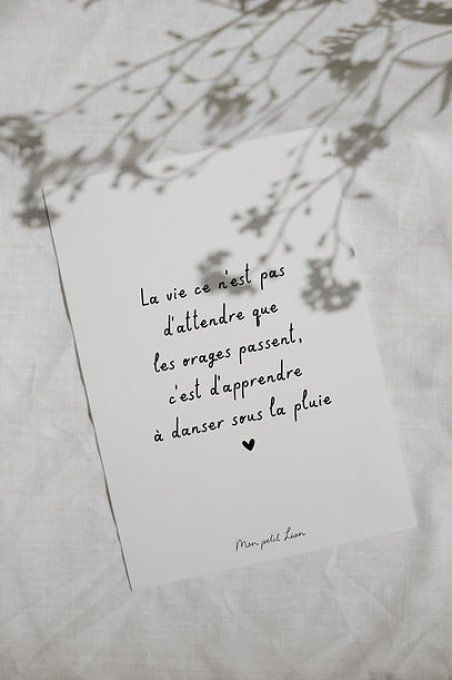 La vie ce n'est pas
d'attendre que
les orages passent,
c'est d'apprendre
à danser sous la pluie
Mon petit Lion